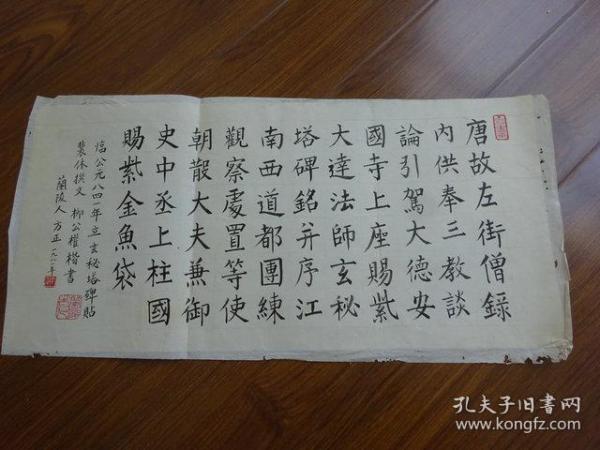 唐故左街僧錄
内供奉三教談
論引駕大德安
國寺上座賜紫
大達法師玄秘
塔碑銘并序江
南西道都團練
觀察處置等使
朝散大夫兼御
史中丞上柱國
賜紫金魚袋
臨公元八四一年立玄秘塔碑貼
裴休撰文 柳公權楷書
蘭陵人 方正
孔夫子旧書网
www.kongfz.com